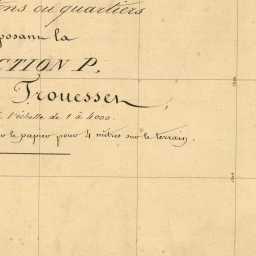 ou quartiers
posant la
CTION P,
Trouessen
l'échelle de 1 à 4000.
le papier pour 4 mètres sur le terrain.